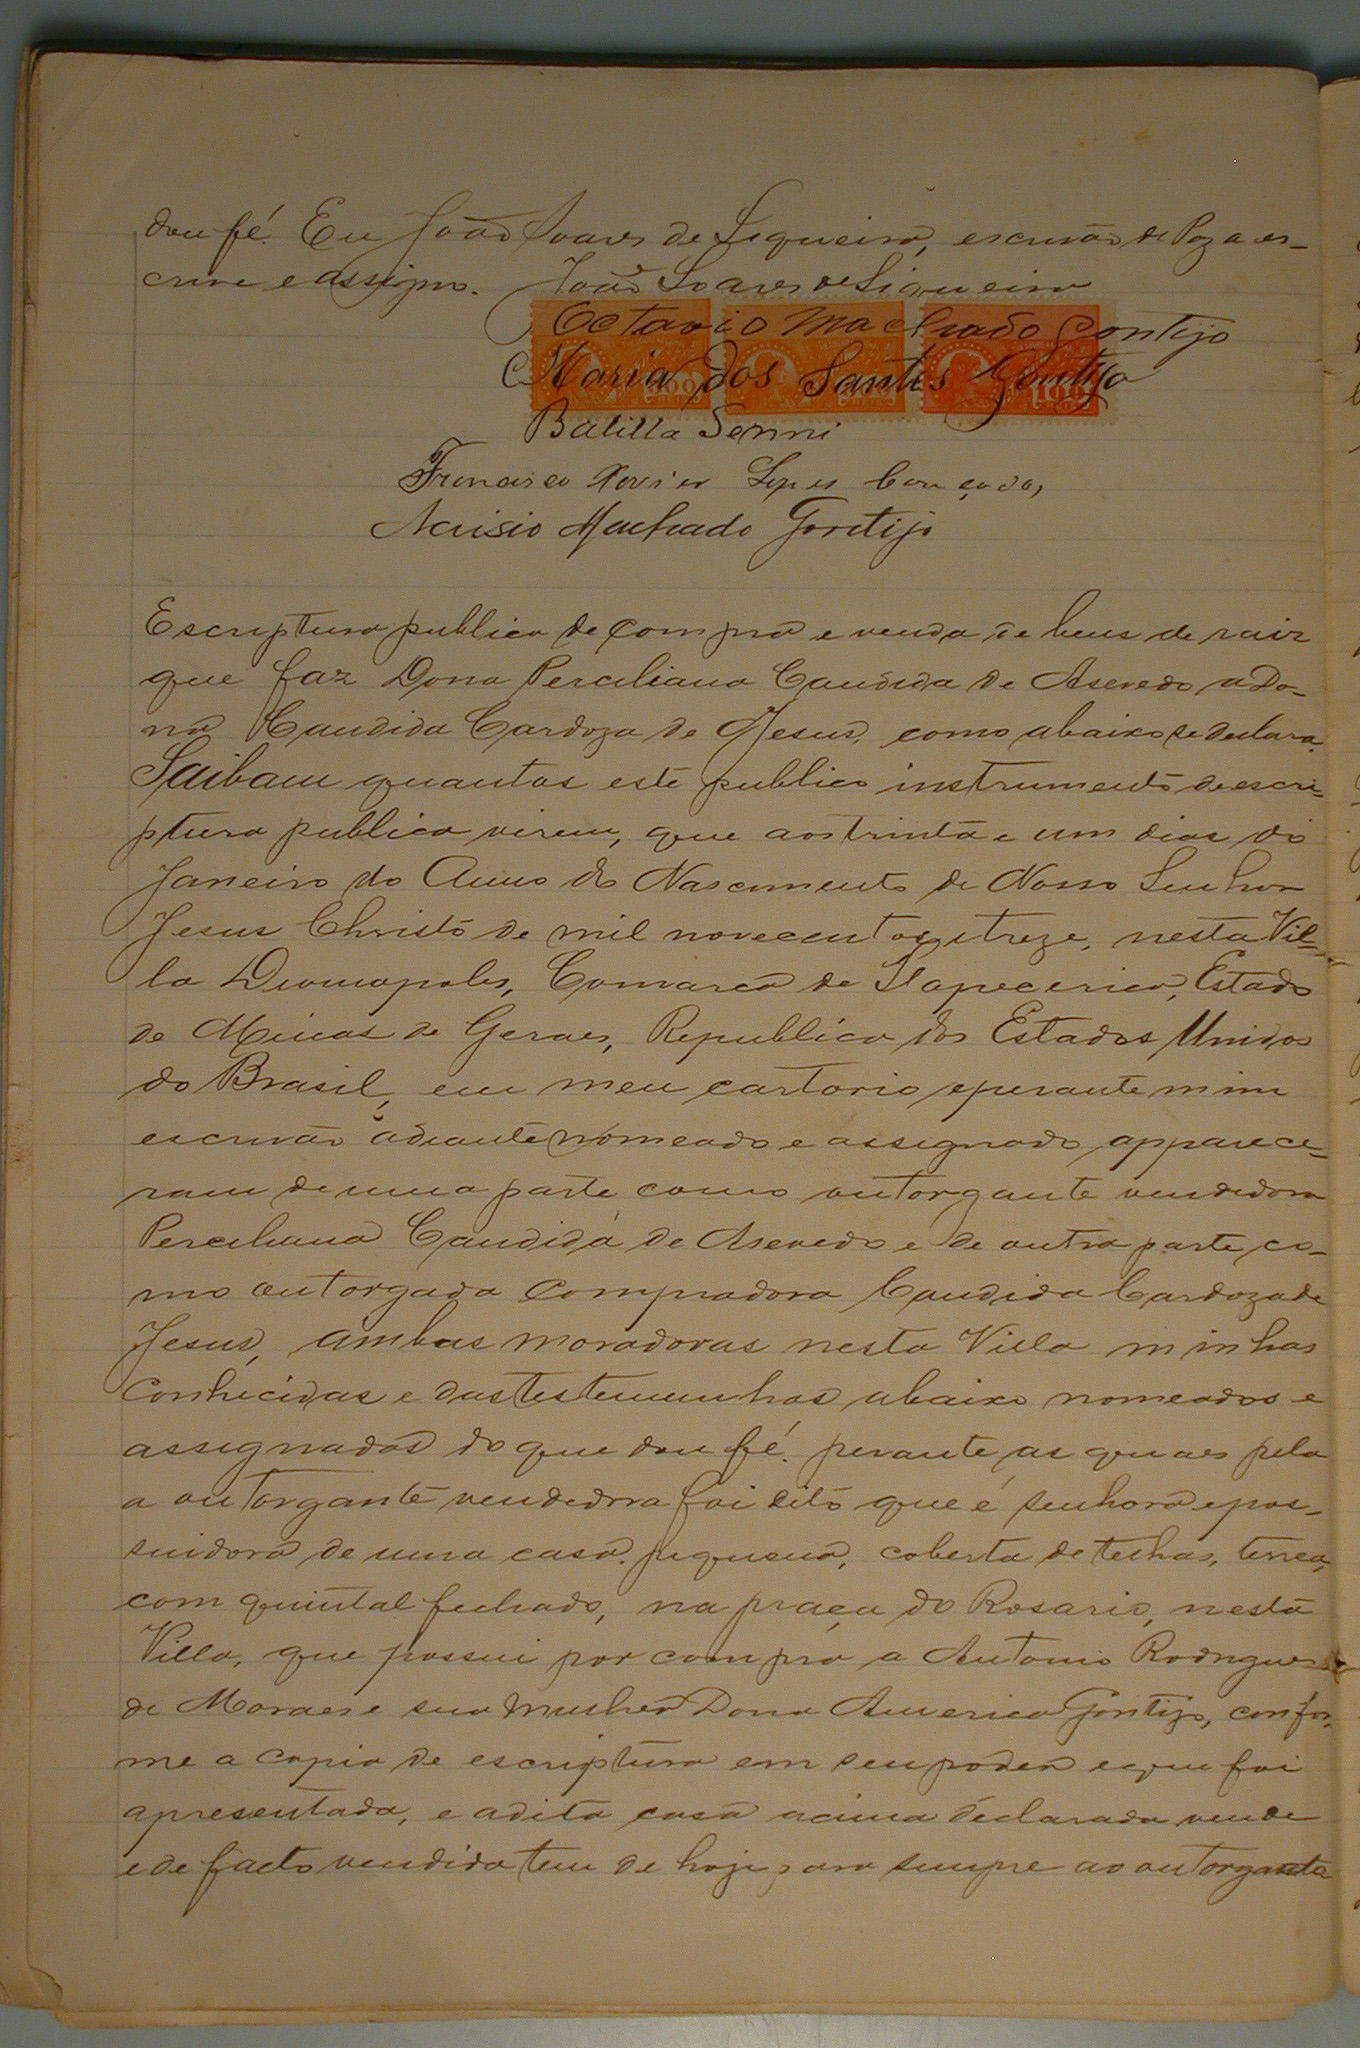 dou fé. Eu João Soares de Siqueira, escrivão de Paz a es-
crevi e assigno. João Soares de Siqueira
Octavio Machado Gontijo
Maria dos Santos Gontijo
Batilla Senni
Francisco Xavier Lopes Cançado,
Acrisio Machado Gontijo
Escriptura publica de compra e venda de bens de raiz
que faz Dona Perciliana Candida de Asevedo a Do-
na Candida Cardoza de Jesus, como abaixo se declara.
Saibam quantos este publico instrumento de escri-
ptura publica virem, que aos trinta e um dias de
Janeiro do Anno do Nascimento de Nosso Senhor
Jesus Christo de mil novecentos e treze, nesta Vil-
la Divinopolis, Comarca de Itapecerica, Estado
de Minas de Geraes, Republica dos Estados Unidos
do Brasil, em meu cartorio e perante mim
escrivão adiante nomeado e assignado, apparece-
ram de uma parte como outorgante vendedora
Perciliana Candida de Asevedo e de outra parte co-
mo outorgada compradora Candida Cardoza de
Jesus, ambas moradoras nesta Villa minhas
conhecidas e das testemunhas abaixo nomeados e
assignados do que dou fé. perante as quaes pela
a outorgante vendedora foi dito que é senhora e pos-
suidora de uma casa pequena, coberta de telhas, terrea,
com quintal fechado, na praça do Rosario, nesta
Villa, que possui por compra a Antonio Rodrigues
de Moraes e sua mulher Dona America Gontijo, confor-
me a copia de escriptura em seu poder e que foi
apresentada, e a dita casa acima declarada vende
e de facto vendida tem de hoje para sempre ao outorgante